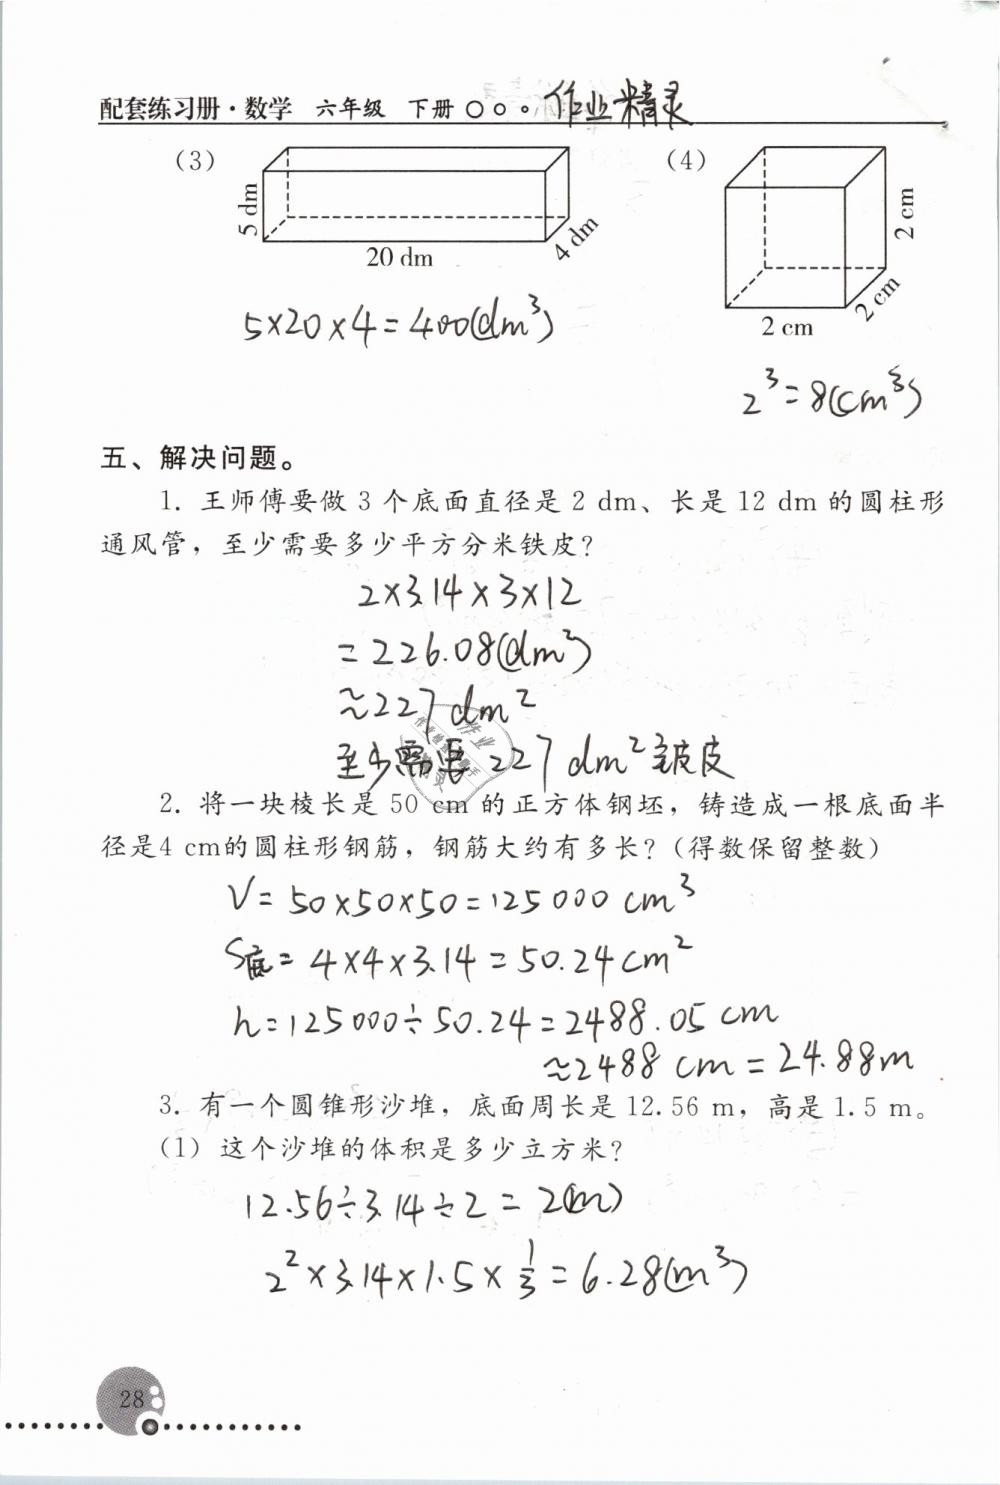 配套练习册·数学 六年级 下册 作业精灵
(3)
(4)
5 dm
20 dm
4 dm
2 cm
2 cm
2 cm
5×20×4=400(dm³)
2³=8(cm³)
五、解决问题。
1. 王师傅要做 3 个底面直径是 2 dm、长是 12 dm 的圆柱形
通风管，至少需要多少平方分米铁皮？
2×3.14×3×12
=226.08(dm³)
≈227 dm²
至少需要 227 dm² 铁皮
2. 将一块棱长是 50 cm 的正方体钢坯，铸造成一根底面半
径是4 cm的圆柱形钢筋，钢筋大约有多长？(得数保留整数)
V=50×50×50=125000 cm³
S底=4×4×3.14=50.24 cm²
h=125000÷50.24=2488.05 cm
≈2488 cm=24.88m
3. 有一个圆锥形沙堆，底面周长是 12.56 m，高是 1.5 m。
(1) 这个沙堆的体积是多少立方米？
12.56÷3.14÷2=2(m)
2²×3.14×1.5×1/3=6.28(m³)
28